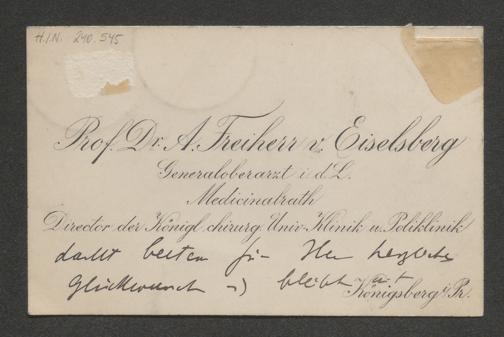 H.I.N. 240.545
Prof. Dr. A. Freiherr v. Eiselsberg
Generaloberarzt i. d. L.
Medicinalrath
Director der Königl. chirurg. Univ. Klinik u. Poliklinik
dankt bestens für Ihren herzlichen
Glückwunsch bleibt
Königsberg i/Pr.